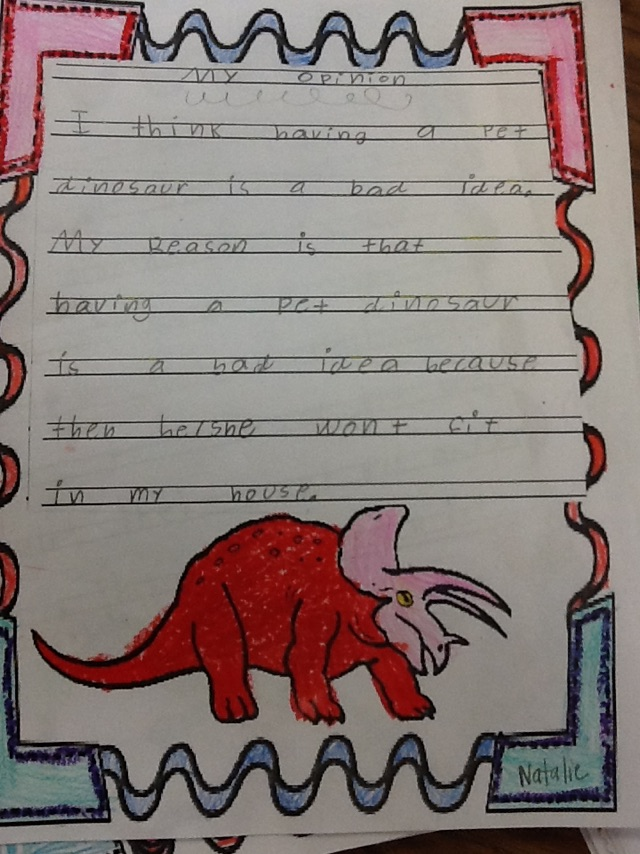 My opinion
I think having a pet
dinosaur is a bad idea.
My Reason is that
having a pet dinosaur
is a bad idea because
then he/she won't fit
in my house.
Natalie